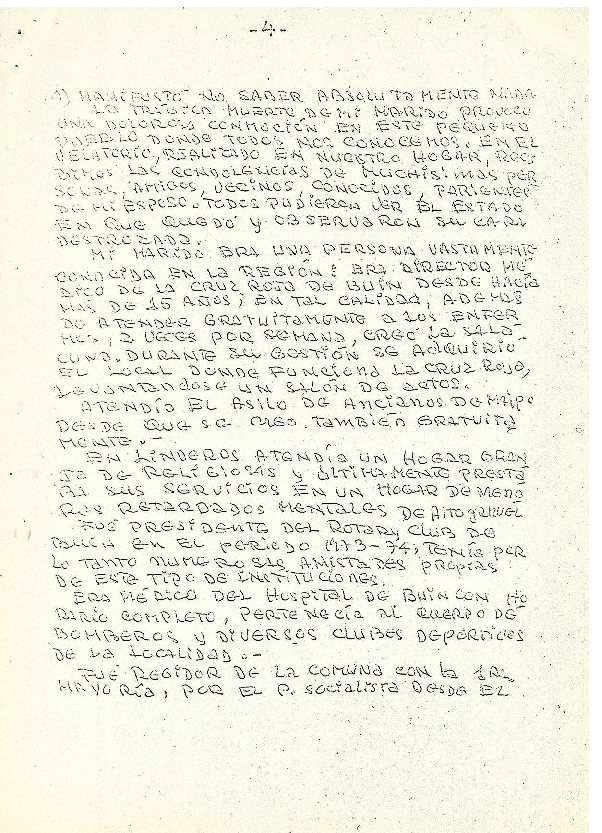 -4.-
4) MANIFESTÓ NO SABER ABSOLUTAMENTE NADA
LA TRÁGICA MUERTE DE MI MARIDO PROVOCÓ
UNA DOLOROSA CONMOCIÓN EN ESTE PEQUEÑO
PUEBLO DONDE TODOS NOS CONOCEMOS. EN EL
VELATORIO, REALIZADO EN NUESTRO HOGAR, RECI
BIMOS LAS CONDOLENCIAS DE MUCHÍSIMAS PER
SONAS, AMIGOS, VECINOS, CONOCIDOS, PARIENTES
DE MI ESPOSO. TODOS PUDIERON VER EL ESTADO
EN QUE QUEDÓ Y OBSERVARON SU CARA
DESTROZADA.
MI MARIDO ERA UNA PERSONA VASTAMENTE
CONOCIDA EN LA REGIÓN: ERA DIRECTOR MÉ
DICO DE LA CRUZ ROJA DE BUIN DESDE HACÍA
MÁS DE 15 AÑOS; EN TAL CALIDAD, ADEMÁS
DE ATENDER GRATUITAMENTE A LOS ENFER
MOS, 2 VECES POR SEMANA, CREÓ LA SALA
CUNA. DURANTE SU GESTIÓN SE ADQUIRIÓ
EL LOCAL DONDE FUNCIONA LA CRUZ ROJA,
LEVANTANDOSE UN SALÓN DE ACTOS.
ATENDÍA EL ASILO DE ANCIANOS DE MAIPO
DESDE QUE SE CREÓ, TAMBIÉN GRATUITA
MENTE.-
EN LINDEROS ATENDÍA UN HOGAR GRAN
JA DE RELIGIOSAS Y ÚLTIMAMENTE PRESTA
BA SUS SERVICIOS EN UN HOGAR DE MENO
RES RETARDADOS MENTALES DE ALTO JAHUEL
FUÉ PRESIDENTE DEL ROTARY CLUB DE
BUIN EN EL PERÍODO 1973-74; TENÍA POR
LO TANTO NUMEROSAS AMISTADES PROPIAS
DE ESTE TIPO DE INSTITUCIONES.
ERA MÉDICO DEL HOSPITAL DE BUIN CON HO
RARIO COMPLETO, PERTENECÍA AL CUERPO DE
BOMBEROS Y DIVERSOS CLUBES DEPORTIVOS
DE LA LOCALIDAD.-
FUÉ REGIDOR DE LA COMUNA CON LA 1RA
MAYORÍA, POR EL P. SOCIALISTA DESDE EL